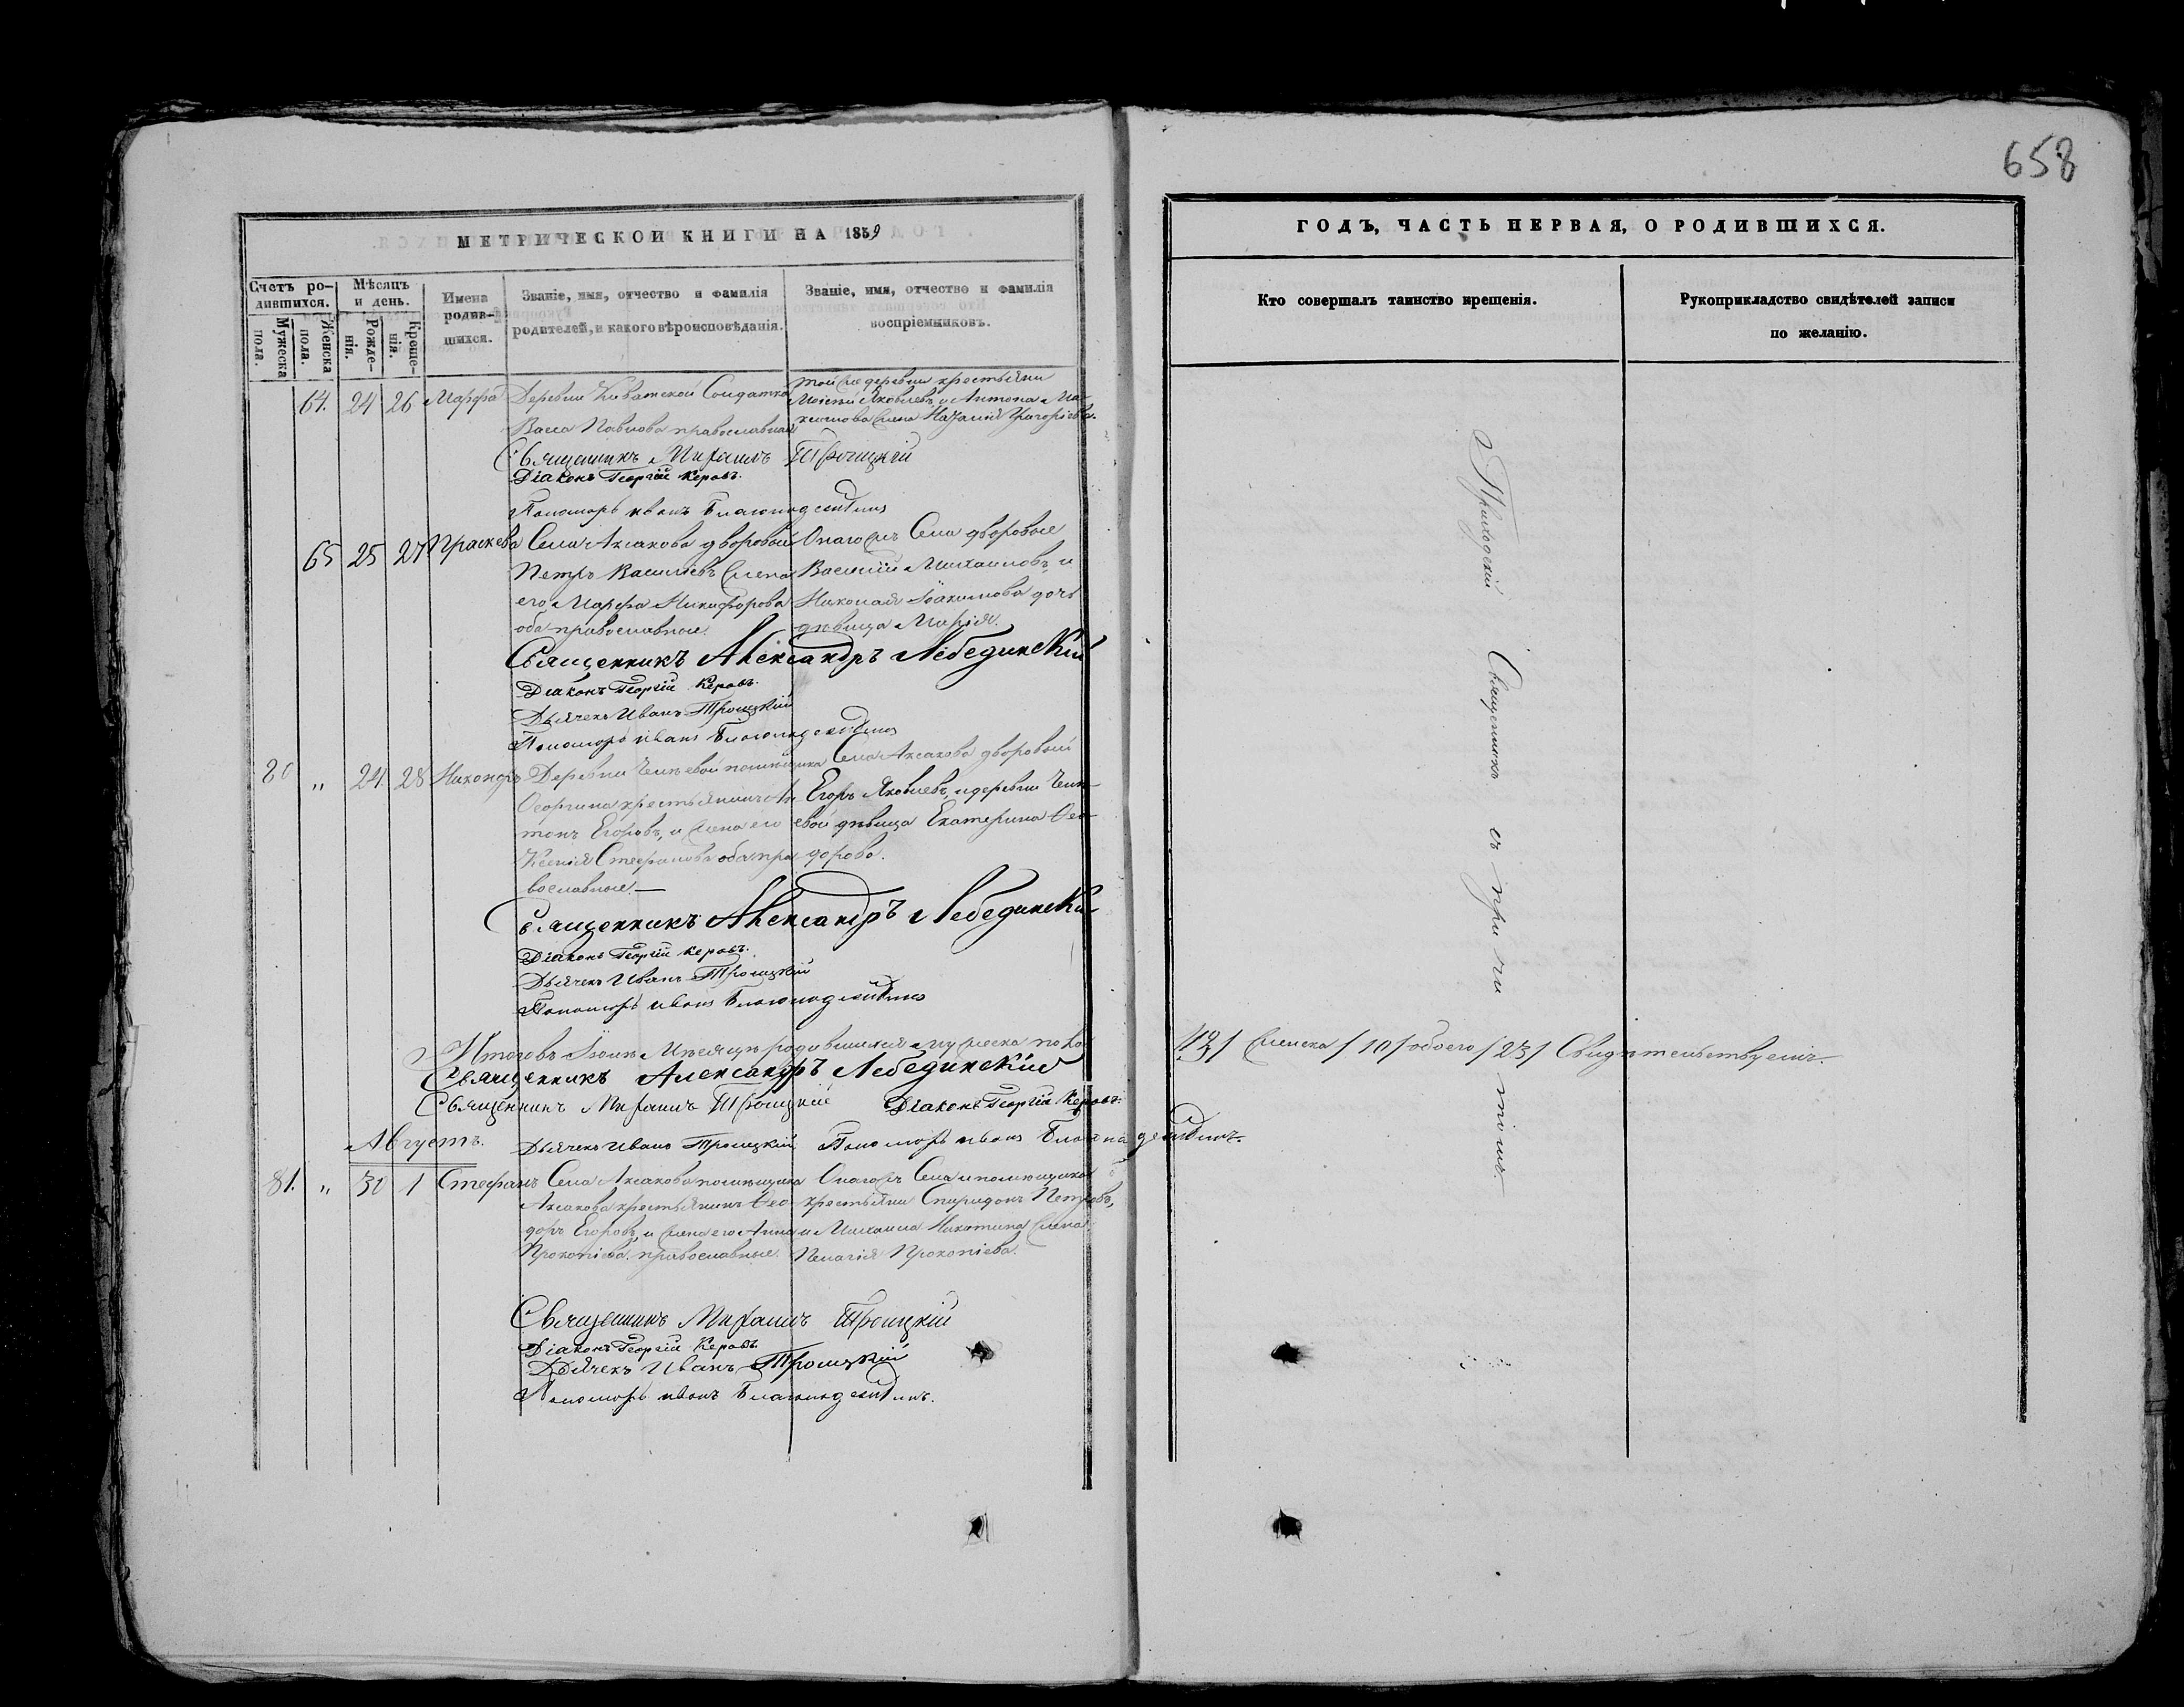 658
МЕТРИЧЕСКОЙ КНИГИ НА 1859
ГОДЪ, ЧАСТЬ ПЕРВАЯ, О РОДИВШИХСЯ.
Счетъ ро-
дившихся.
Мужеска
пола.
Женска
пола.
Мѣсяцъ
и день.
Рожде-
нія.
Креще-
нія.
Имена
родив-
шихся.
Званіе, имя, отчество и фамилія
родителей, и какого вѣроисповѣданія.
Званіе, имя, отчество и фамилія
воспріемниковъ.
Кто совершалъ таинство крещенія.
Рукоприкладство свидѣтелей записи
по желанію.
64. 24 26 Марѳа Деревни Солдатка
Васса Павлова православная
той же деревни крестьяне
Моисей Яковлевъ, и Антона Ма-
ксимова жена Наталія Григоріева.
Священникъ Троицкій
Діаконъ Георгій Керовъ.
Пономарь Иванъ
65 25 27 Праскева Села Аксакова дворовый
Петръ Василіевъ жена
его Марѳа Никифорова
оба православные.
Онагожъ Села дворовые
Василій Михаиловъ, и
Николая Іоакимова дочь
дѣвица Марія.
Священникъ Александръ Лебединскій
Діаконъ Георгій Керовъ.
Дьячекъ Иванъ Троицкій
Пономарь Иванъ
80 „ 24. 28 Никандръ Деревни помѣщика
крестьянинъ Ан-
тонъ Егоровъ, и жена его
Ксенія Стефанова оба пра-
вославные.—
Села Аксакова дворовый
Егоръ Яковлевъ, и деревни
дѣвица Екатерина Ѳео-
дорова.
Священникъ Александръ Лебединскій
Діаконъ Георгій Керовъ.
Дьячекъ Иванъ Троицкій
Пономарь Иванъ
Итого въ Мѣсяцѣ родившихся мужеска пола /13/ женска /10/ обоего /23/ Свидѣтельствуемъ.
Священникъ Александръ Лебединскій
Священникъ Троицкій Діаконъ Георгій Керовъ.
Августъ. Дьячекъ Иванъ Троицкій Пономарь Иванъ
81. „ 30 1 Стефанъ Села Аксакова помѣщика
Аксакова крестьянинъ Ѳео-
доръ Егоровъ, и жена его Анна
Прокопіева. православные.
Онагожъ Села и помѣщика
крестьяне Спиридонъ Петровъ,
и Михаила Никитина жена
Пелагія Прокопіева.
Священникъ Троицкій
Діаконъ Георгій Керовъ
Дьячекъ Иванъ Троицкій
Пономарь Иванъ
Приходскій Священникъ съ причтомъ.